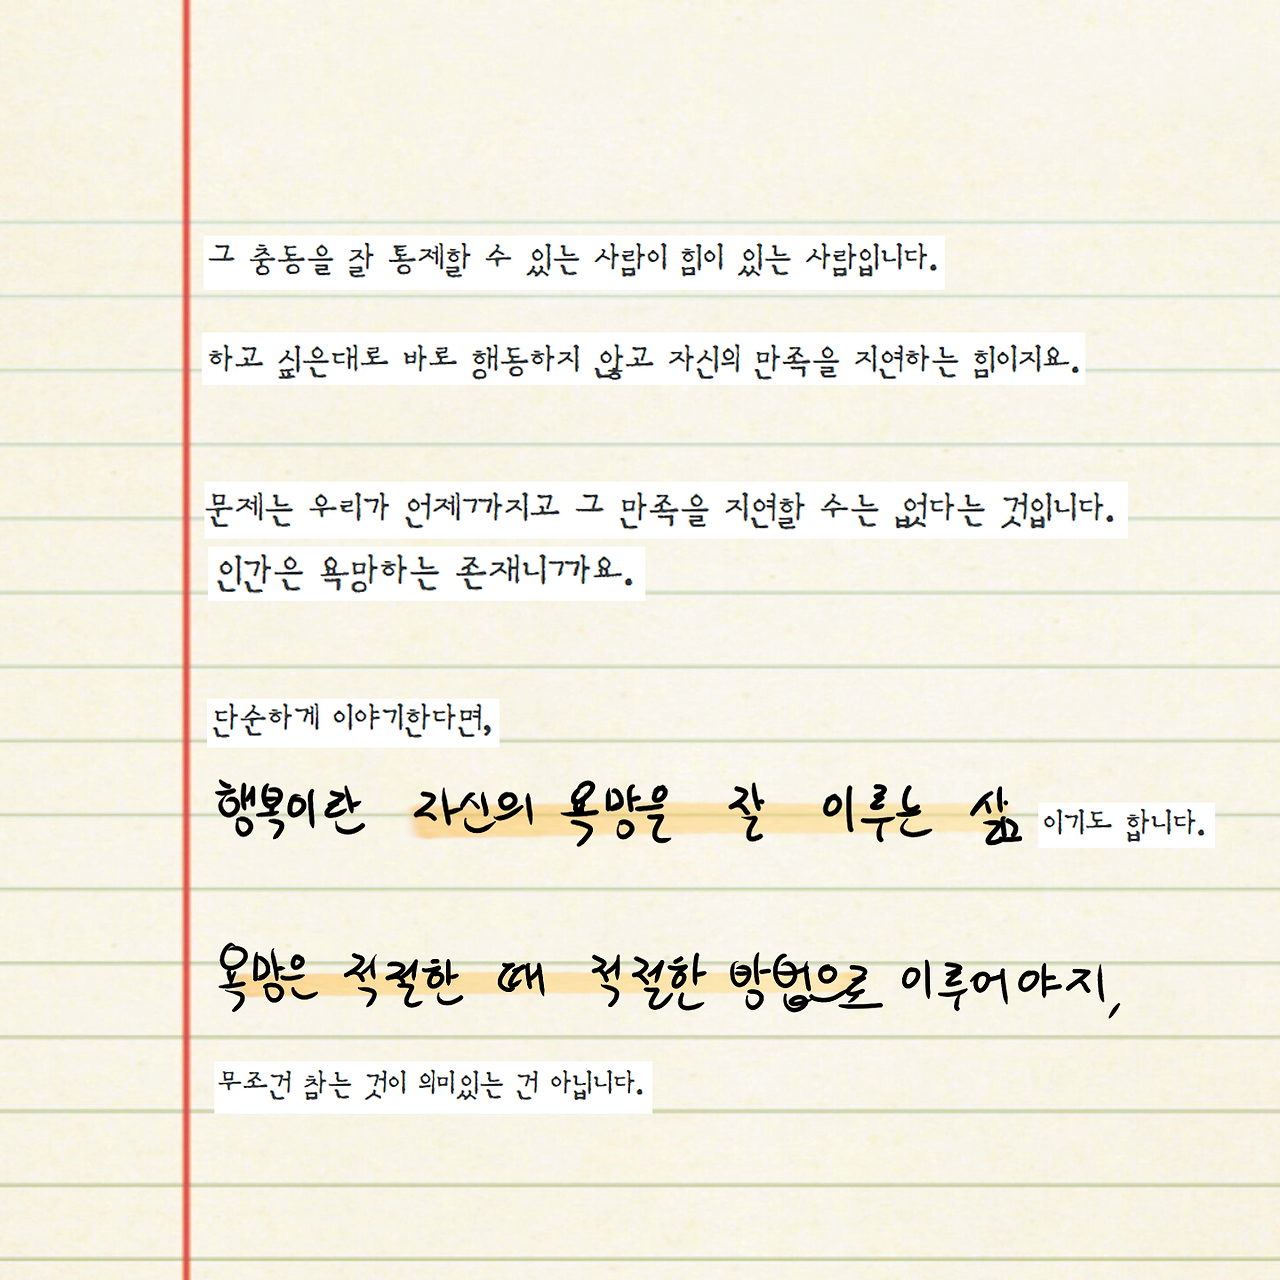 그 충동을 잘 통제할 수 있는 사람이 힘이 있는 사람입니다.
하고 싶은대로 바로 행동하지 않고 자신의 만족을 지연하는 힘이지요.
문제는 우리가 언제까지고 그 만족을 지연할 수는 없다는 것입니다.
인간은 욕망하는 존재니까요.
단순하게 이야기한다면,
행복이란 자신의 욕망을 잘 이루는 삶이기도 합니다.
욕망은 적절한 때 적절한 방법으로 이루어야지,
무조건 참는 것이 의미있는 건 아닙니다.